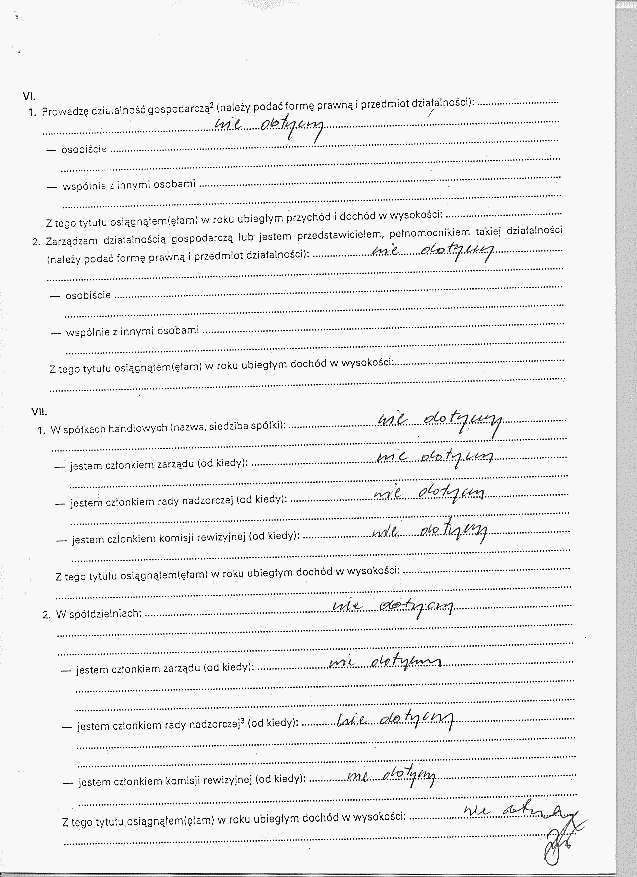 VI.
1. Prowadzę działalność gospodarczą² (należy podać formę prawną i przedmiot działalności):
nie dotyczy
— osobiście
— wspólnie z innymi osobami
Z tego tytułu osiągnąłem(ęłam) w roku ubiegłym przychód i dochód w wysokości:
2. Zarządzam działalnością gospodarczą lub jestem przedstawicielem, pełnomocnikiem takiej działalności
(należy podać formę prawną i przedmiot działalności): nie dotyczy
— osobiście
— wspólnie z innymi osobami
Z tego tytułu osiągnąłem(ęłam) w roku ubiegłym dochód w wysokości:
VII.
1. W spółkach handlowych (nazwa, siedziba spółki): nie dotyczy
— jestem członkiem zarządu (od kiedy): nie dotyczy
— jestem członkiem rady nadzorczej (od kiedy): nie dotyczy
— jestem członkiem komisji rewizyjnej (od kiedy): nie dotyczy
Z tego tytułu osiągnąłem(ęłam) w roku ubiegłym dochód w wysokości:
2. W spółdzielniach: nie dotyczy
— jestem członkiem zarządu (od kiedy): nie dotyczy
— jestem członkiem rady nadzorczej³ (od kiedy): nie dotyczy
— jestem członkiem komisji rewizyjnej (od kiedy): nie dotyczy
Z tego tytułu osiągnąłem(ęłam) w roku ubiegłym dochód w wysokości: nie dotyczy